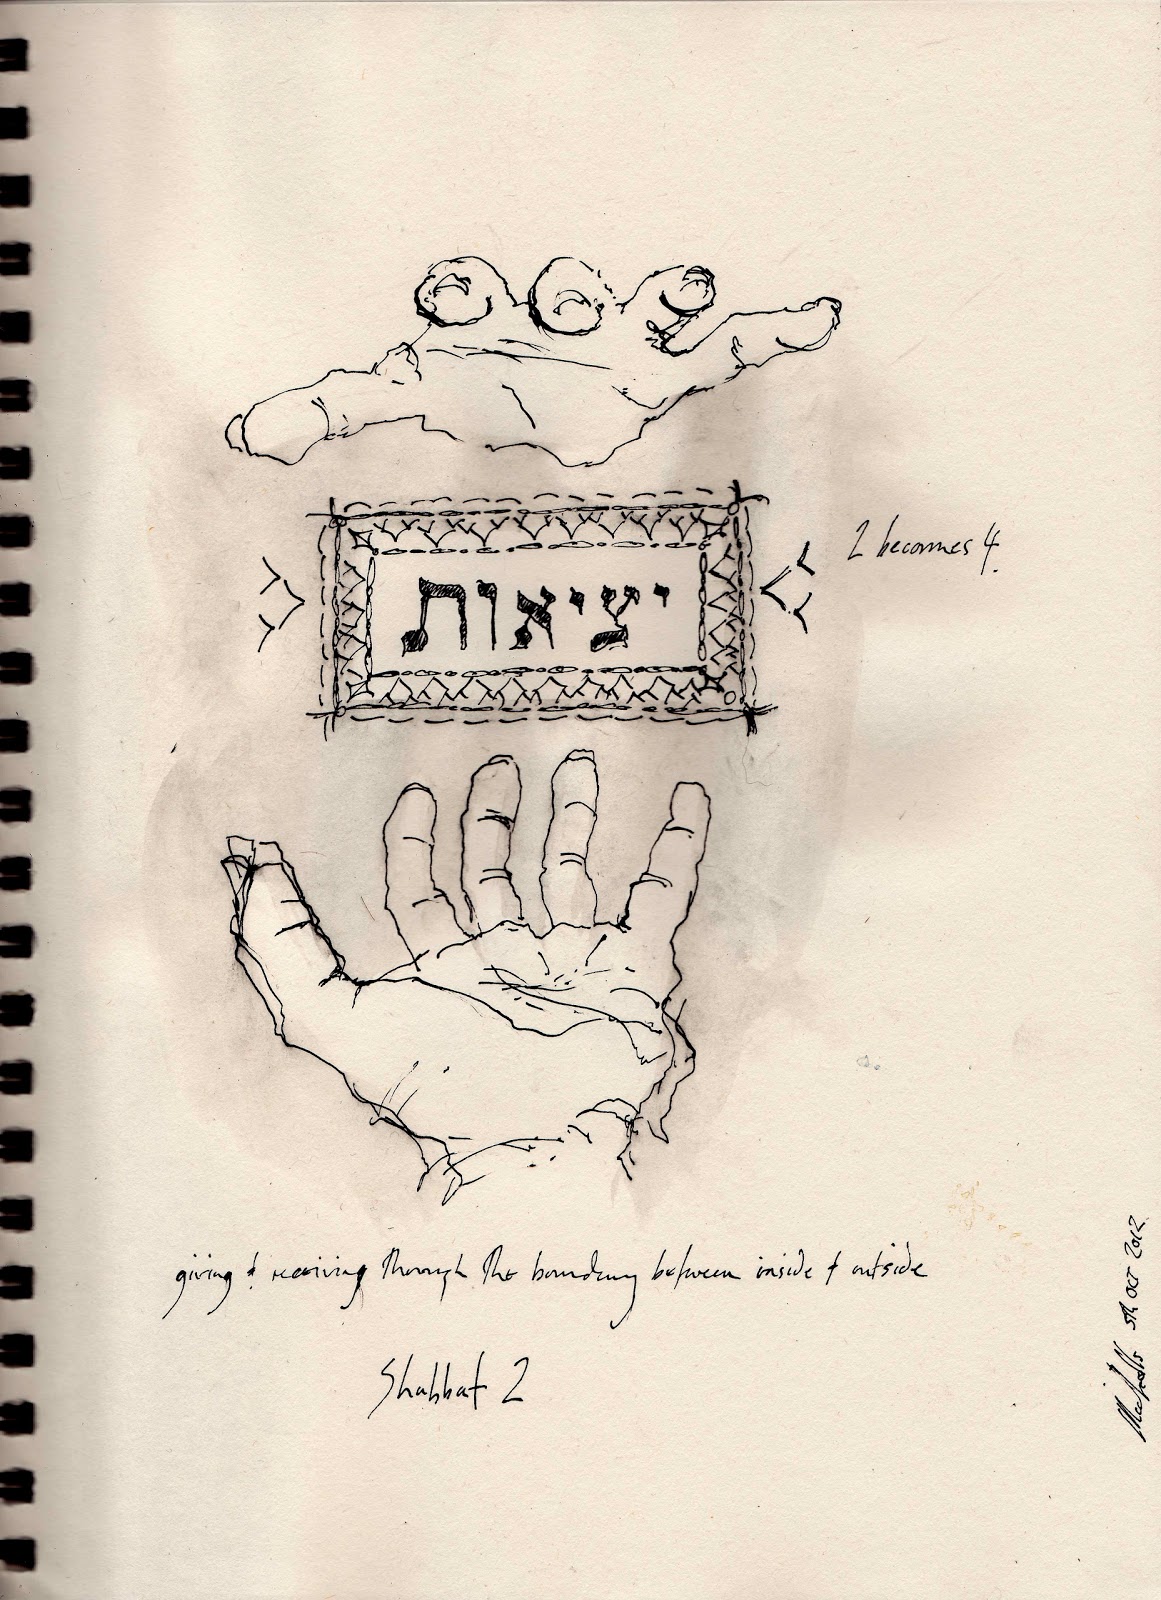 2 becomes 4.
יציאות
giving & receiving through the boundary between inside & outside
Shabbat 2
5th OCT 2012